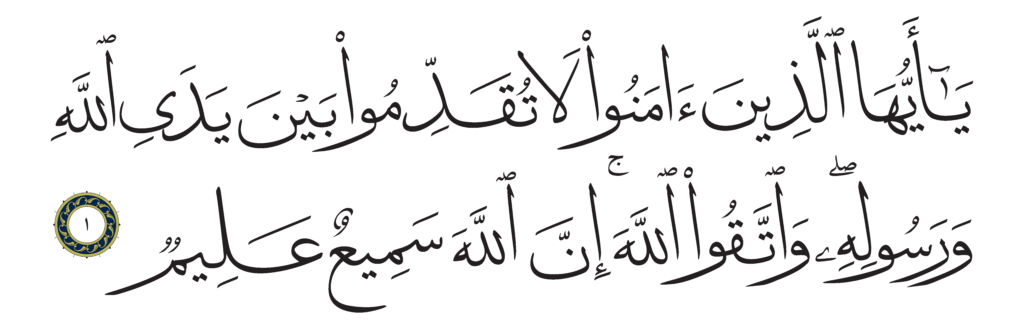 يَـٰٓأَيُّهَا ٱلَّذِينَ ءَامَنُوا۟ لَا تُقَدِّمُوا۟ بَيْنَ يَدَىِ ٱللَّهِ
وَرَسُولِهِۦۖ وَٱتَّقُوا۟ ٱللَّهَۚ إِنَّ ٱللَّهَ سَمِيعٌ عَلِيمٌ ١